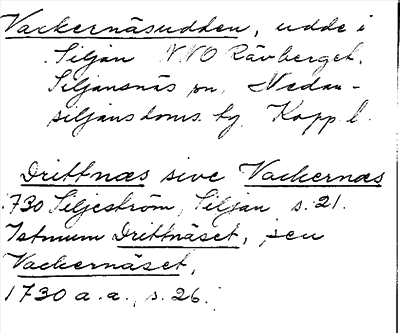 Vackernäsudden, udde i
Siljan NNO Rävberget,
Siljansnäs sn, Nedan-
siljans doms. hg Kopp. l.
Drittnæs sive Vackernæs
1730 Siljeström, Siljan s. 21.
Istmum Drittnäset, seu
Vackernäset,
1730 a.a., s. 26.